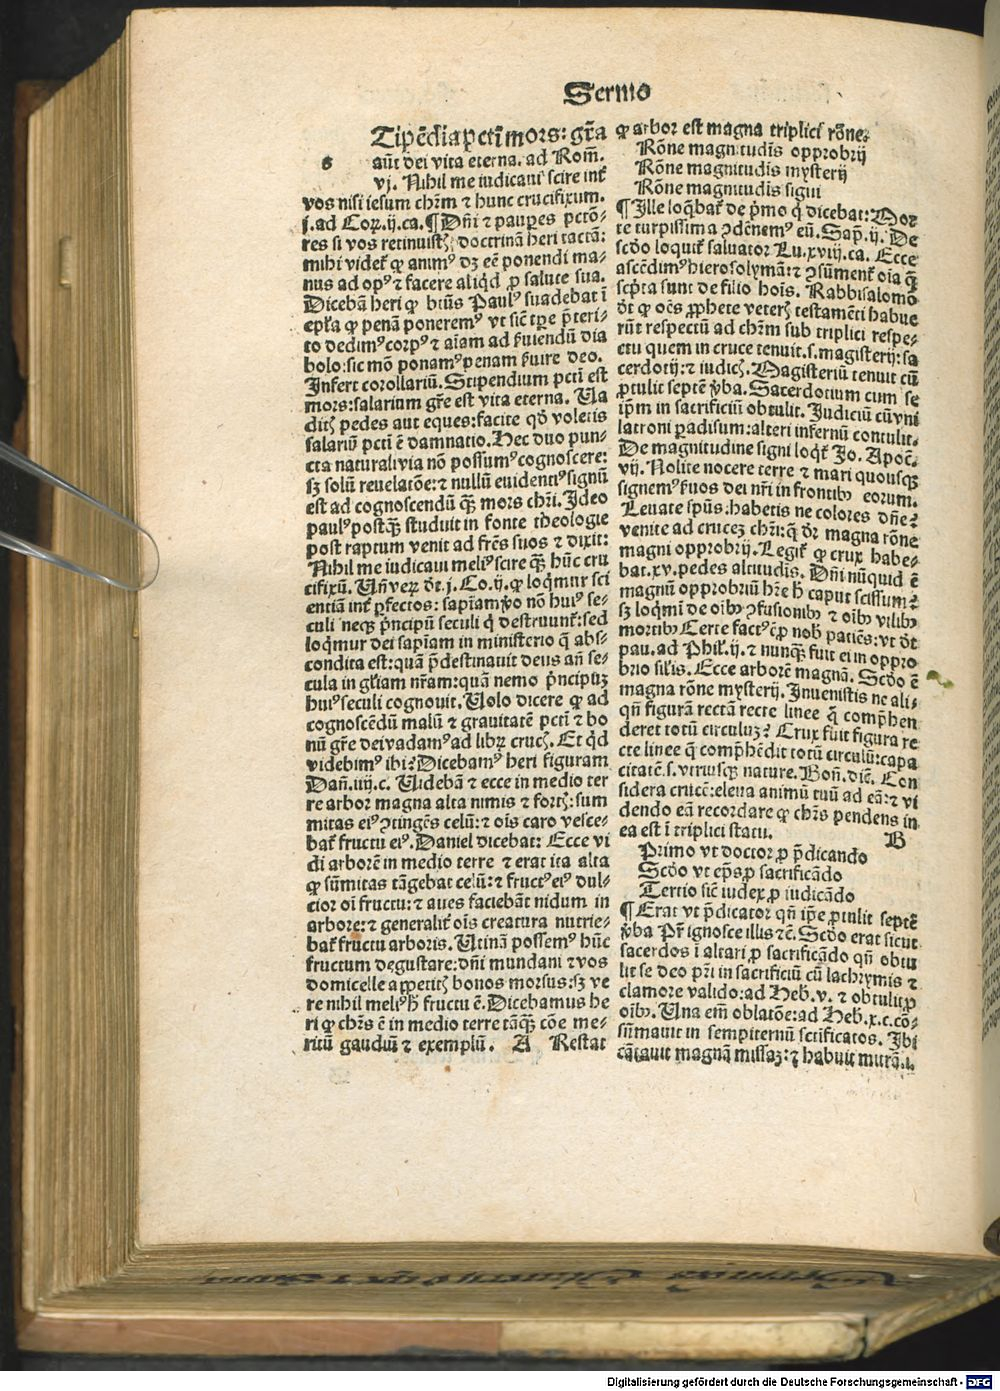 Sermo
Tipẽdia pctĩ mors: gr̃a
s aũt dei vita eterna. ad Rom̃.
vj. Nihil me iudicaui scire int̃
vos nisi iesum chr̃m ⁊ hunc crucifixum.
j. ad Coꝝ. ij. ca. ¶ Dñi ⁊ paup̲es pctõ-
res si vos retinuistꝭ doctrinã heri tactã:
mihi videt̃ ꝙ animꝰ dꝫ eẽ ponendi ma-
nus ad opꝰ ⁊ facere aliq̃d ꝓ salute sua.
Dicebã heri ꝙ btũs Paulꝰ suadebat ĩ
epl̃a ꝙ penã poneremꝰ vt sic̃ tp̃e p̃teri-
to dedimꝰ corpꝰ ⁊ aĩam ad ẜuiendũ dia
bolo: sic mõ ponamꝰ penam ẜuire deo.
Infert corollariũ. Stipendium pctĩ est
mors: salarium gr̃e est vita eterna. Ua
ditꝭ pedes aut eques: facite qd̃ voletis
salariũ pctĩ ẽ damnatio. Hec duo pun-
cta naturali via nõ possumꝰ cognoscere:
sꝫ solũ reuelatõe: ⁊ nullũ euidentiꝰ signũ
est ad cognoscendũ q̃ꝫ mors chr̃i. Ideo
paulꝰ postq̃ꝫ studuit in fonte theologie
post raptum venit ad fr̃es suos ⁊ dixit:
Nihil me iudicaui meliꝰ scire q̃ꝫ hũc cru
cifixũ. Uñ veꝝ dt̃. j. Co. ij. ꝙ loq̃mur sci
entiã int̃ ꝑfectos: sapĩam ꝟo nõ huiꝰ se-
culi neqꝫ p̃ncipũ seculi q̃ destruunt̃: sed
loq̃mur dei sapĩam in ministerio q̃ abs-
condita est: quã p̃destinauit deus añ se-
cula in gl̃iam nr̃am: quã nemo p̃ncipuꝫ
huiꝰ seculi cognouit. Uolo dicere ꝙ ad
cognoscẽdũ malũ ⁊ grauitatẽ pctĩ ⁊ bo
nũ gr̃e dei vadamꝰ ad libꝝ crucꝭ. Et q̃d
videbimꝰ ibi? Dicebamꝰ heri figuram
Dañ. iiij. c. Uidebã ⁊ ecce in medio ter
re arbor magna alta nimis ⁊ fortꝭ: sum
mitas eiꝰ ꝯtingẽs celũ: ⁊ oĩs caro vesce-
bat̃ fructu eiꝰ. Daniel dicebat: Ecce vi
di arborẽ in medio terre ⁊ erat ita alta
ꝙ sũmitas tãgebat celũ: ⁊ fructꝰ eiꝰ dul-
cior oĩ fructu: ⁊ aues faciebãt nidum in
arbore: ⁊ generalit̃ oĩs creatura nutrie-
bat̃ fructu arboris. Utinã possemꝰ hũc
fructum degustare: dñi mundani ⁊ vos
domicelle appetitꝭ bonos morsus: sꝫ ve
re nihil meliꝰ h̃ fructu ẽ. Dicebamus he
ri ꝙ chr̃s ẽ in medio terre tãq̃ꝫ cõe me-
ritũ gaudiũ ⁊ exemplũ. A Restat
ꝙ arbor est magna triplici rõne.
Rõne magnitudĩs opprobrij
Rõne magnitudĩs mysterij
Rõne magnitudis signi
¶ Ille loq̃bat̃ de p̃mo q̃ dicebat: Mor
te turpissima ꝯdẽnemꝰ eũ. Sap̃. ij. De
scd̃o loquit̃ saluator Lu. xviij. ca. Ecce
ascẽdimꝰ hierosolymã: ⁊ ꝯsũment̃ oĩa q̃
scp̃ta sunt de filio hoĩs. Rabbi salomõ
dt̃ ꝙ oẽs ꝓphete veterꝭ testamẽti habue
rũt respectũ ad chr̃m sub triplici respe-
ctu quem in cruce tenuit. s. magisterij: sa
cerdotij: ⁊ iudicꝭ. Magisteriũ tenuit cũ
ꝓtulit septẽ ꝟba. Sacerdotium cum se
ip̃m in sacrificiũ obtulit. Judiciũ cũ vni
latroni ꝑadisum: alteri infernũ contulit.
De magnitudine signi loq̃t̃ Jo. Apoc̃.
vij. Nolite nocere terre ⁊ mari quousqꝫ
signemꝰ ẜuos dei nr̃i in frontibꝰ eorum.
Leuate sp̃us: habetis ne colores dñe?
venite ad cruceꝫ chr̃i: q̃ dr̃ magna rõne
magni opprobrij. Legit̃ ꝙ crux habe-
bat. xv. pedes altitudĩs. Dñi nũquid ẽ
magnũ opprobriũ hr̃e h̃ caput scissum?
sꝫ loq̃mĩ de oĩbꝰ ꝯfusionibꝰ ⁊ oĩbꝰ vilibꝰ
mortibꝰ Certe factꝰ ẽ ꝓ nob̃ patiẽs: vt dt̃
pau. ad Phil̃. ij. ⁊ nunq̃ꝫ fuit ei in oppro
brio sil̃is. Ecce arborẽ magnã. Scd̃o ẽ
magna rõne mysterij. Inuenistis ne ali-
qñ figurã rectã recte linee q̃ comp̃hen
deret totũ circuluꝫ? Crux fuit figura re
cte linee q̃ comp̃hẽdit totũ circulũ: capa
citatẽ. s. vtriusqꝫ nature. Boñ. diẽ. Con
sidera crucẽ: eleua animũ tuũ ad eã: ⁊ vi
dendo eã recordare ꝙ chr̃s pendens in
ea est ĩ triplici statu. B
Primo vt doctor ꝓ p̃dicando
Scd̃o vt ep̃s ꝓ sacrificãdo
Tertio sic̃ iudex ꝓ iudicãdo
¶ Erat vt p̃dicator qñ ip̃e ꝓtulit septẽ
ꝟba Pr̃ ignosce illis ⁊c̃. Scd̃o erat sicut
sacerdos ĩ altari ꝓ sacrificãdo qñ obtu
lit se deo pr̃i in sacrificiũ cũ lachrymis ⁊
clamore valido: ad Heb̃. v. ⁊ obtulit ꝓ
oĩbꝰ. Una em̃ oblatõe: ad Heb̃. x. c. cõ-
sũmauit in sempiternũ sctificatos. Ibi
cãtauit magnã missaꝫ: ⁊ habuit
Digitalisierung gefördert durch die Deutsche Forschungsgemeinschaft - DFG